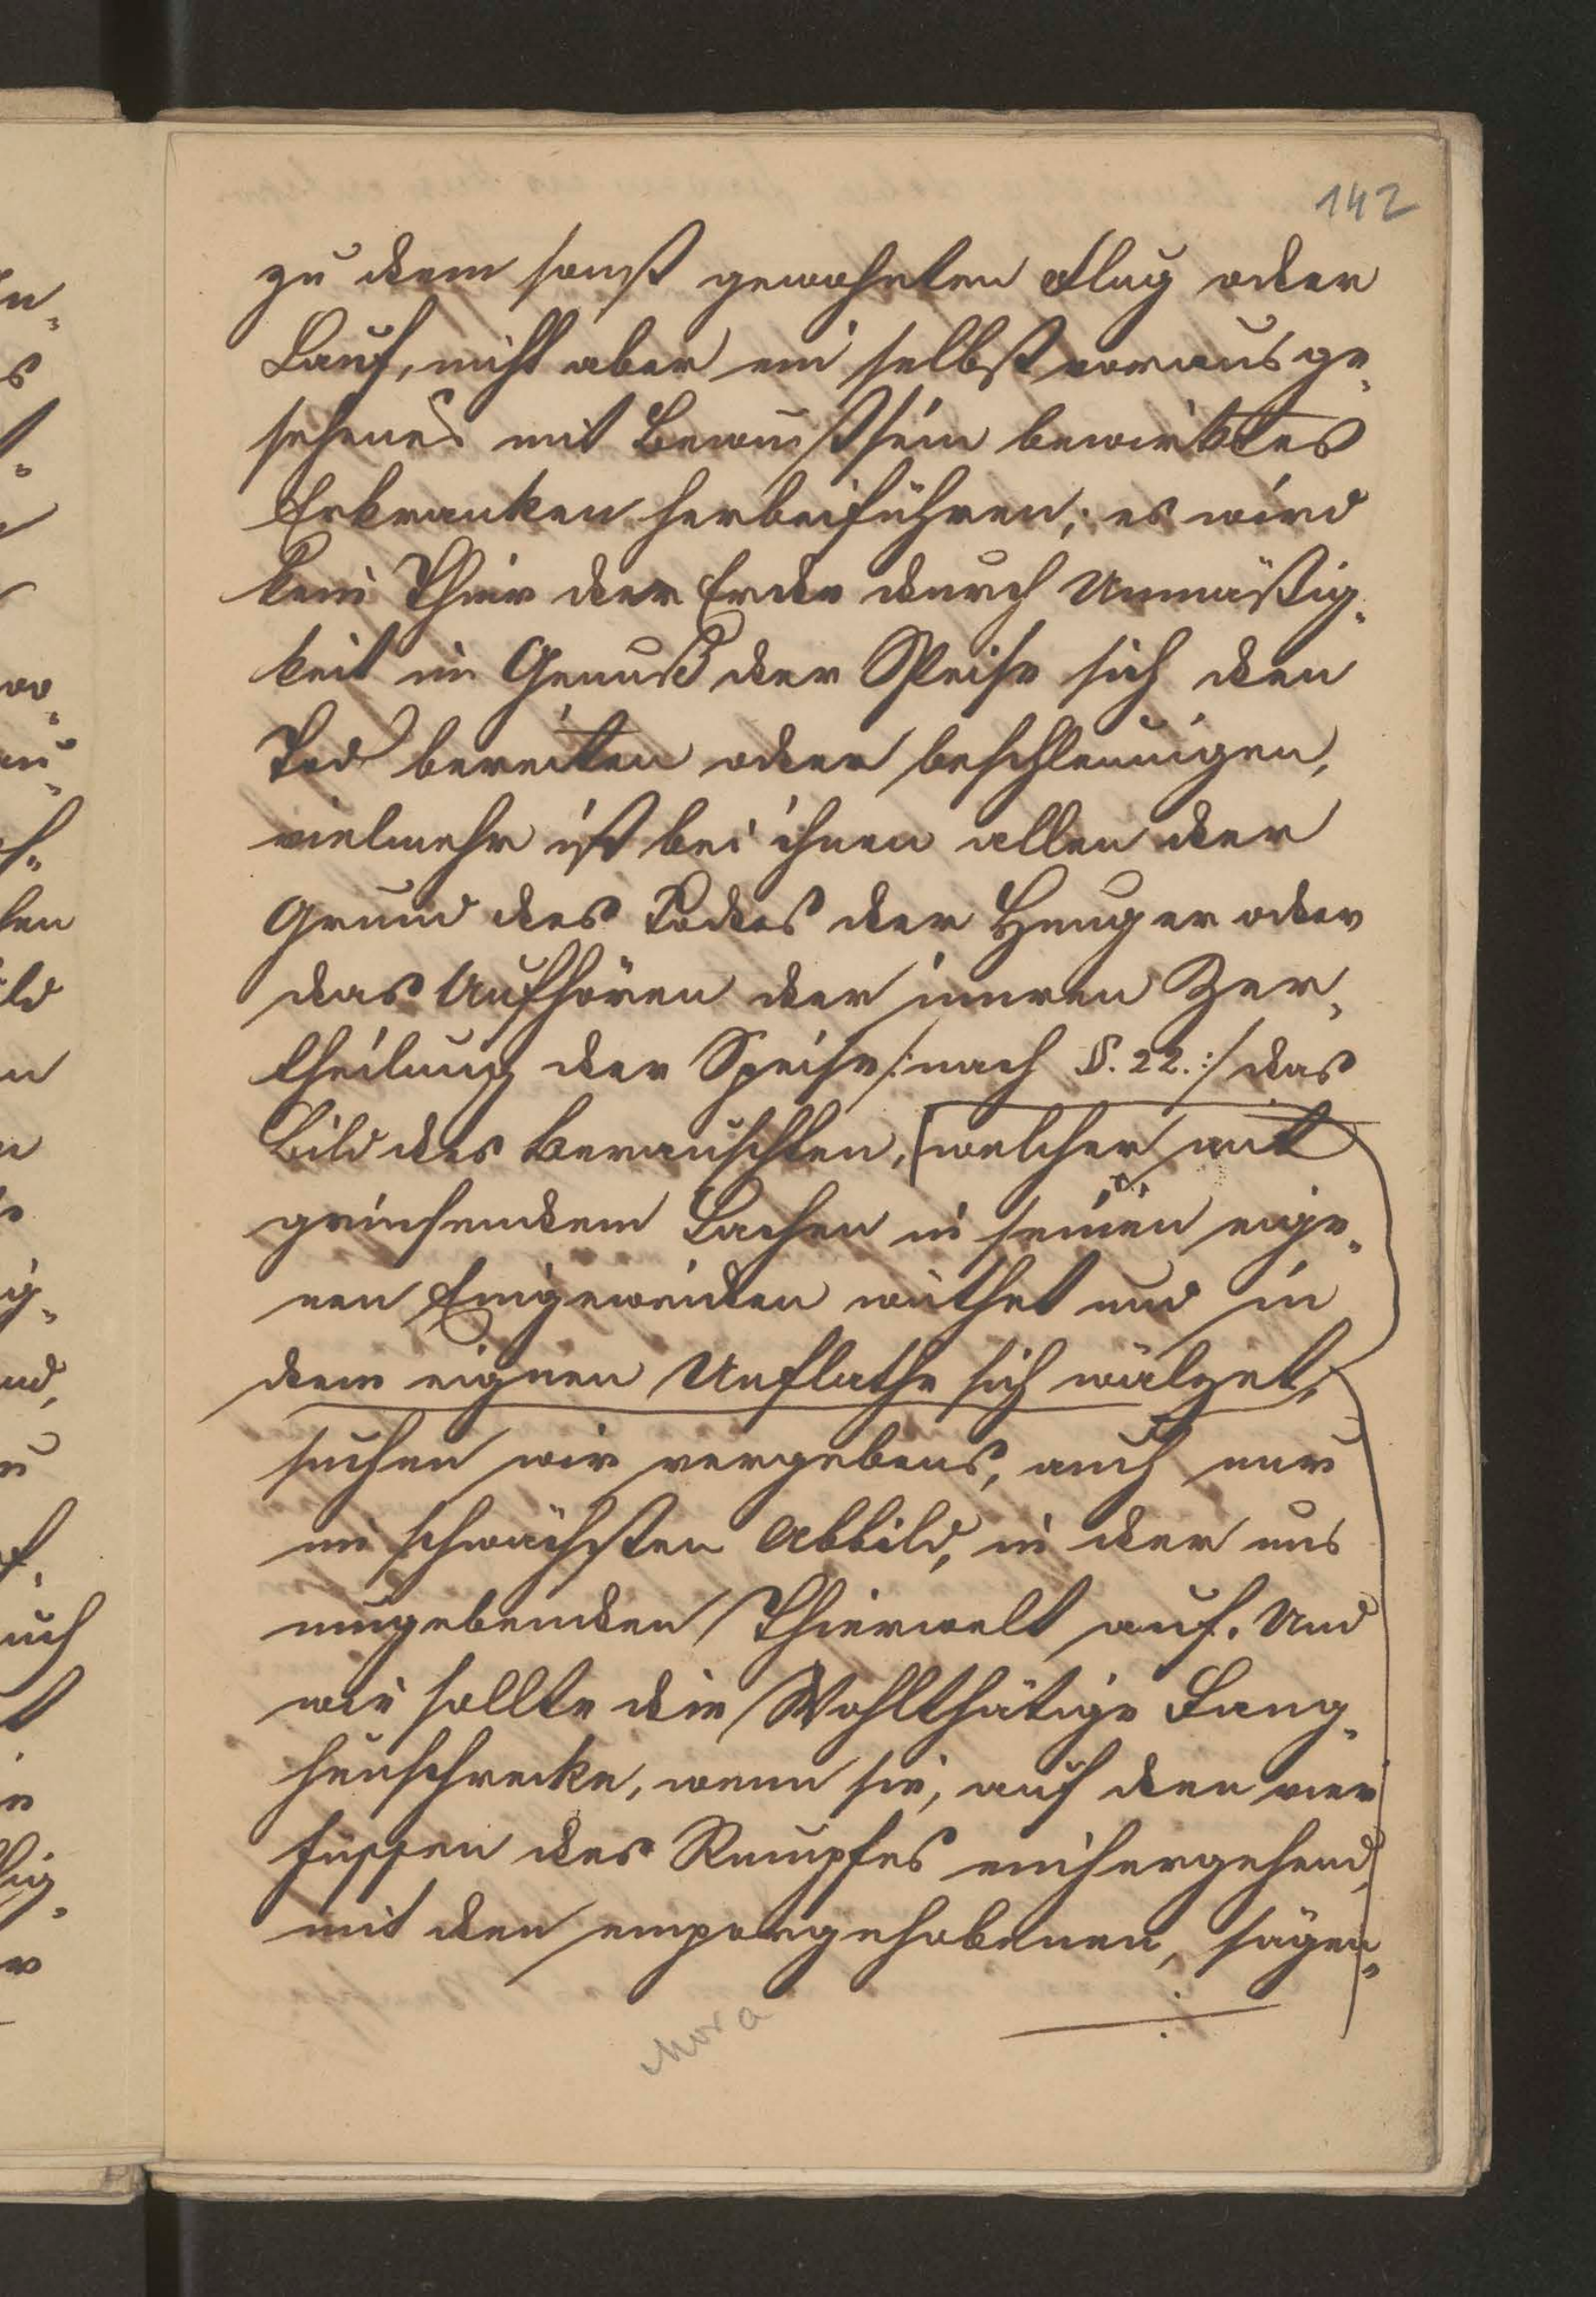 142
zu dem sonst gewohnten Flug oder
Lauf, nicht aber ein selbst vorausge„
sehenes mit Bewußtsein bewirktes
Erkranken herbeiführen; es wird
kein Thier der Erde durch Unmäßig„
keit im Genuß der Speise sich den
Tod bereiten oder beschleunigen,
vielmehr ist bei ihnen allen der
Grund des Todes der Hunger oder
das Aufhören der inneren Zer„
theilung der Speise /: nach §. 22. :/ das
Bild des Berauschten, [welcher mit
grinsendem Lachen in seinen eige„
nen Eingeweiden wüthet und in
dem eignen Unflathe sich wälzet,
suchen wir vergebens, auch nur
im schwächsten Abbild, in der uns
umgebenden Thierwelt auf. Und
wie sollte die Wohlthätige Fang„
heuschrecke, wenn sie, auf den vier
Füssen des Rumpfes einhergehend,
mit den emporgehobenen, sägen„